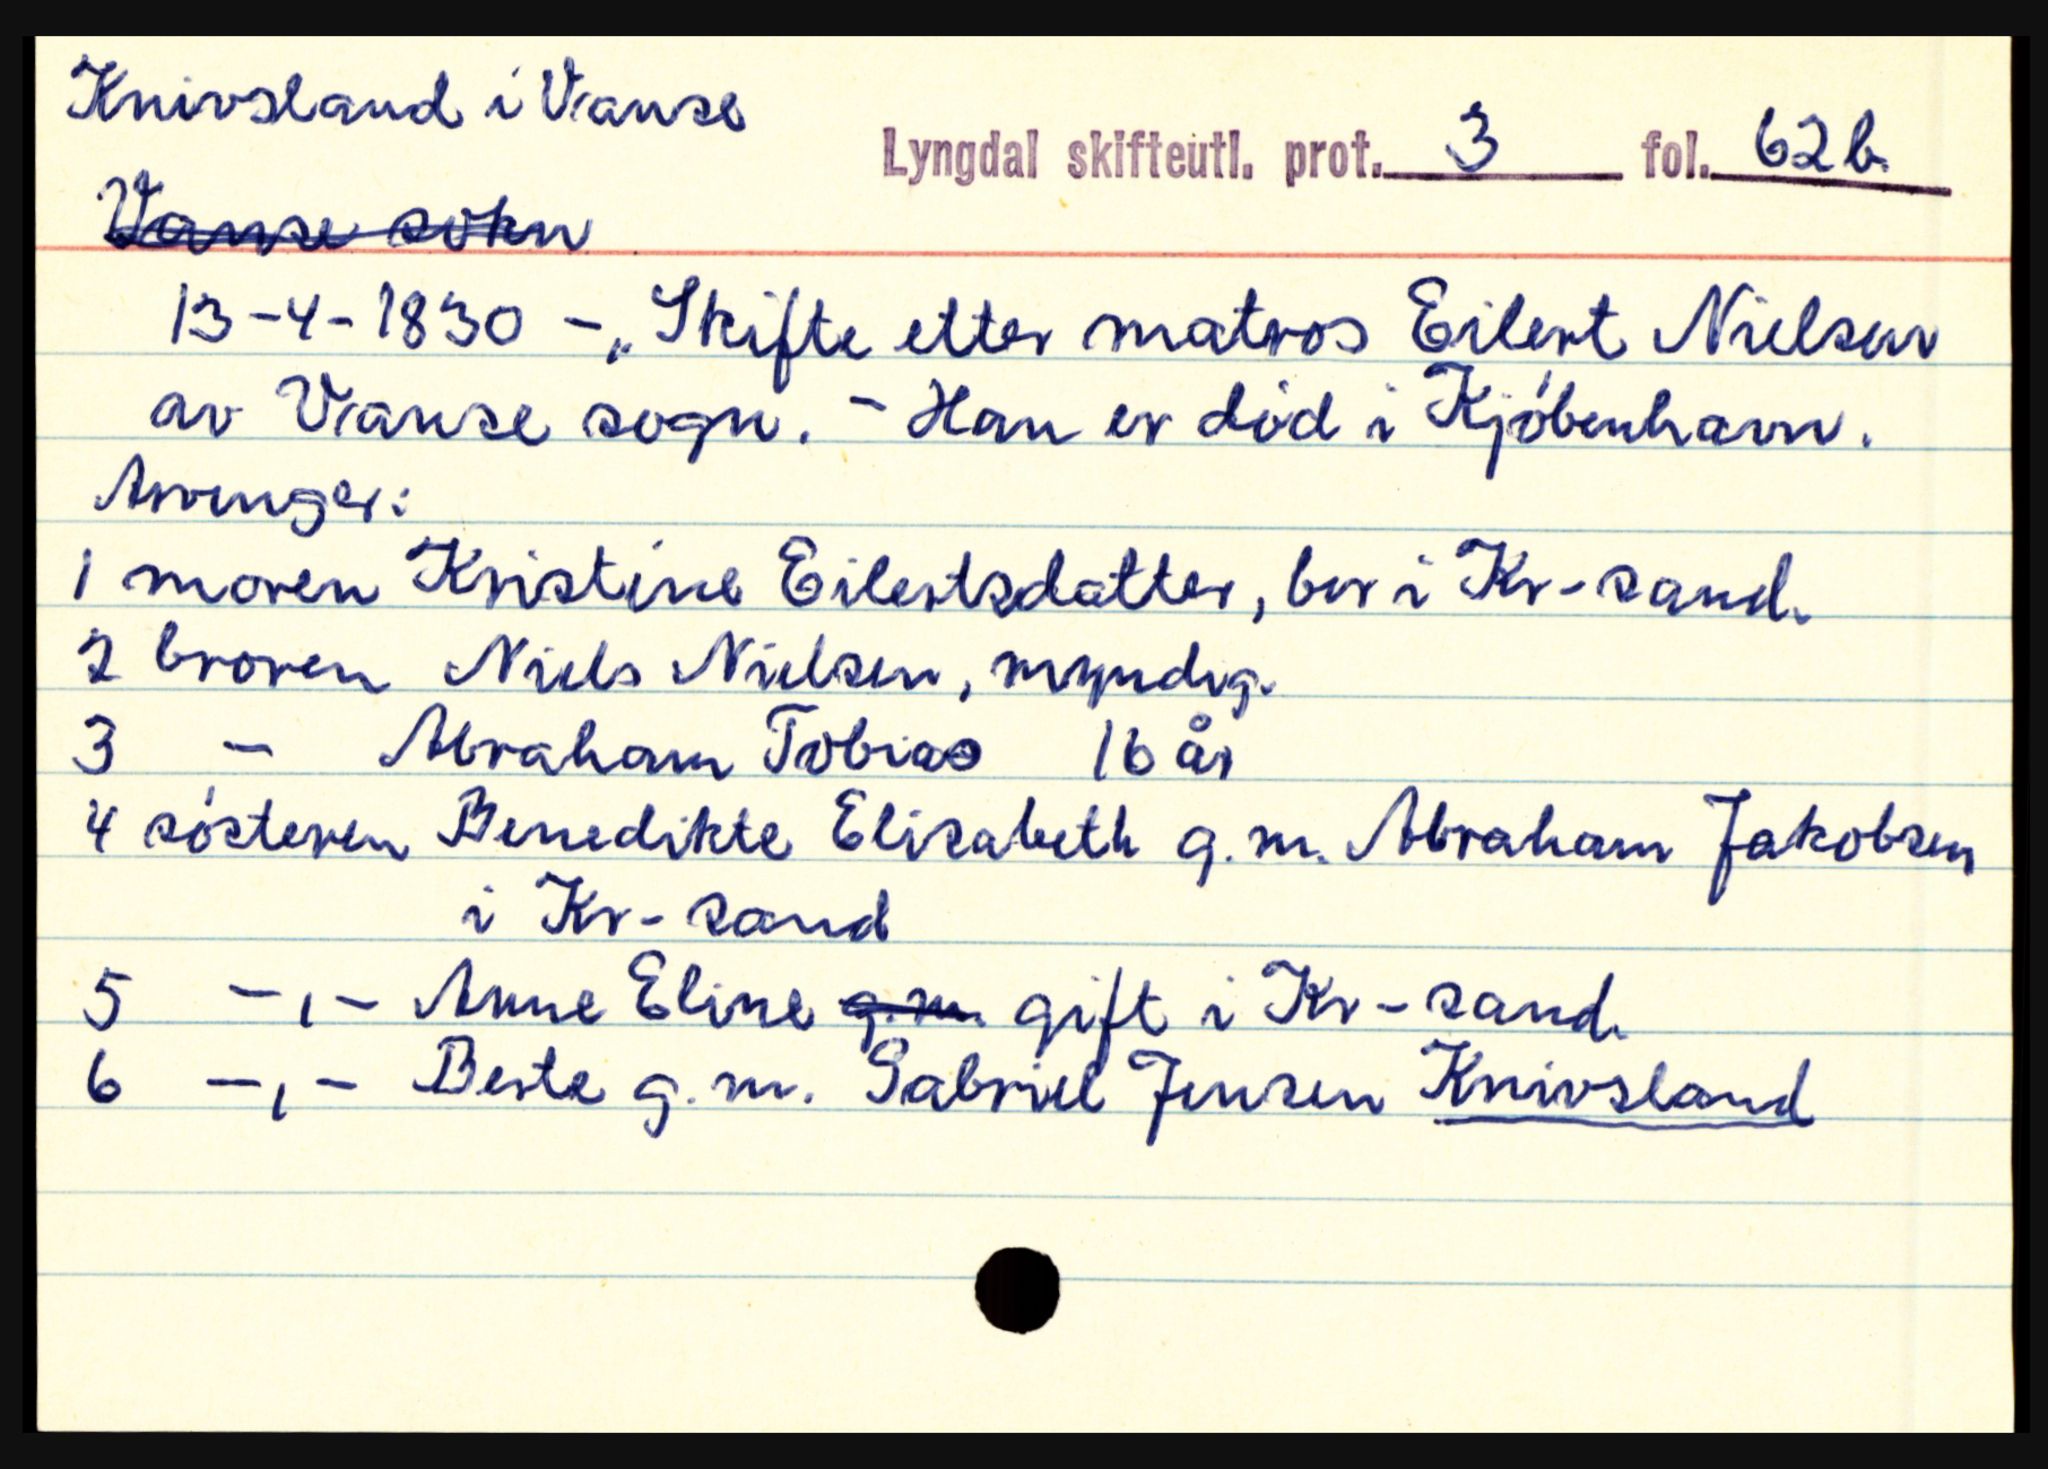 Knivsland i Vanse
Lyngdal skifteutl. prot. 3 fol. 62b.
Vanse sokn
13-4-1830 -„ Skifte etter matros Eilert Nielsen
av Vanse sogn. - Han er död i Kjöbenhavn.
Arvinger:
1 moren Kristine Eilertsdatter, bor i Kr-sand.
2 broren Niels Nielsen, myndig.
3 - Abraham Tobias 16 år
4 søsteren Benedikte Elisabeth g.m. Abraham Jakobsen
i Kr-sand
5 -,- Anne Eline g.m. gift i Kr-sand.
6 -,- Berte g.m. Gabriel Jensen Knivsland